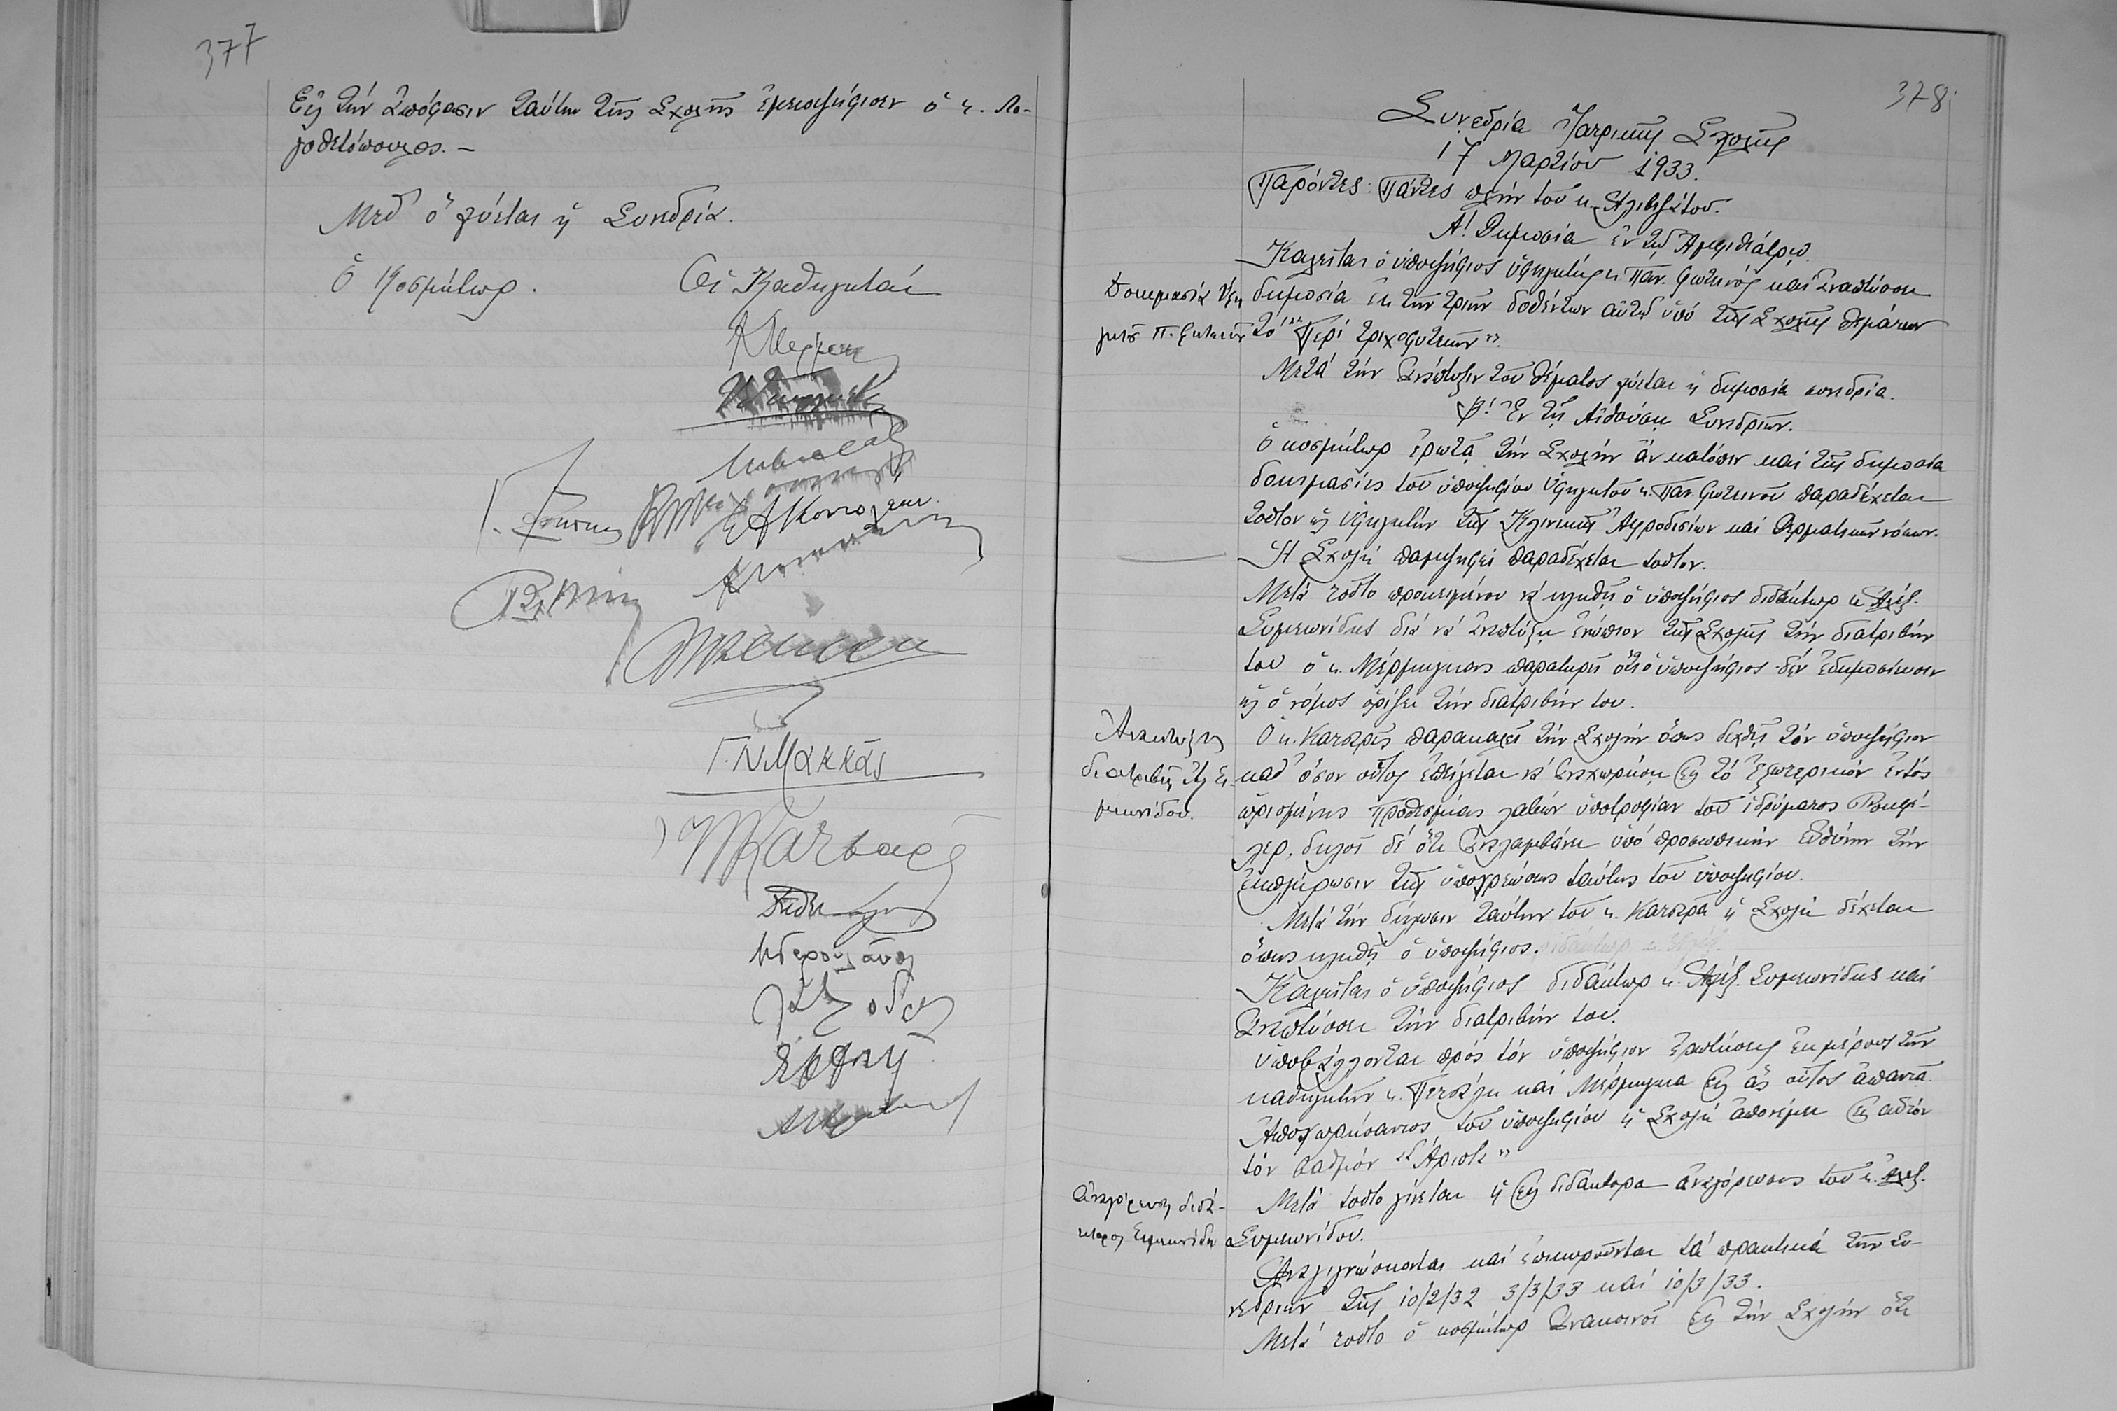 377
Εἰς τὴν ἀπόφασιν ταύτην τῆς Σχολῆς ἐμειοψήφισεν ὁ κ. Λο-
γοθετόπουλος. –
Μεθ' ὃ λύεται ἡ Συνεδρία.
Ὁ Κοσμήτωρ. Οἱ Καθηγηταί
Γ. Ν. Μακκάς
Κατσαρᾶς
378
Συνεδρία Ἰατρικῆς Σχολῆς
17 Μαρτίου 1933.
Παρόντες: Πάντες πλὴν τοῦ κ. Ἀλιβιζάτου.
Α! Δημοσία ἐν τῷ Ἀμφιθεάτρῳ.
Καλεῖται ὁ ὑποψήφιος ὑφηγητής κ. Παν. Φωτεινός καὶ ἀναπτύσσει
Δοκιμασία ὑφη
δημοσία ἐκ τῶν τριῶν δοθέντων αὐτῷ ὑπὸ τῆς Σχολῆς θεμάτων
γητοῦ Π. Φωτεινοῦ
τό "Περὶ τριχοφυτιῶν".
Μετὰ τὴν ἀνάπτυξιν τοῦ θέματος λύεται ἡ δημοσία συνεδρία.
Β! Ἐν τῇ Αἰθούσῃ Συνεδριῶν.
Ὁ κοσμήτωρ ἐρωτᾷ τὴν Σχολὴν ἂν κατόπιν καὶ τῆς δημοσία
δοκιμασίας τοῦ ὑποψηφίου ὑφηγητοῦ κ. Παν. Φωτεινοῦ παραδέχεται
τοῦτον ὡς ὑφηγητὴν τῆς Κλινικῆς Ἀφροδισίων καὶ Δερματικῶν νόσων.
Ἡ Σχολὴ παμψηφεὶ παραδέχεται τοῦτον.
Μετὰ τοῦτο προκειμένου νὰ κληθῇ ὁ ὑποψήφιος διδάκτωρ κ. Ἀλέξ.
Συμεωνίδης διὰ νὰ ἀναπτύξῃ ἐνώπιον τῆς Σχολῆς τὴν διατριβήν
του ὁ κ. Μέρμηγκας παρατηρεῖ ὅτι ὁ ὑποψήφιος δὲν ἐδημοσίευσεν
ὡς ὁ νόμος ὁρίζει τὴν διατριβήν του.
Ἀνάπτυξις
Ὁ κ. Κατσαρᾶς παρακαλεῖ τὴν Σχολὴν ὅπως δεχθῇ τὸν ὑποψήφιον
διατριβῆς Ἀλ. Συ-
καθ' ὅσον οὗτος ἐπείγεται ν' ἀναχωρήσῃ εἰς τὸ ἐξωτερικὸν ἐντὸς
μεωνίδου.
ὡρισμένης προθεσμίας λαβὼν ὑποτροφίαν τοῦ ἱδρύματος Ῥοκφέ-
λερ, δηλοῖ δὲ ὅτι ἀναλαμβάνει ὑπὸ προσωπικὴν εὐθύνην τὴν
ἐκπλήρωσιν τῆς ὑποχρεώσεως ταύτης τοῦ ὑποψηφίου.
Μετὰ τὴν δήλωσιν ταύτην τοῦ κ. Κατσαρᾶ ἡ Σχολὴ δέχεται
ὅπως κληθῇ ὁ ὑποψήφιος.
Καλεῖται ὁ ὑποψήφιος διδάκτωρ κ. Ἀλέξ. Συμεωνίδης καὶ
ἀναπτύσσει τὴν διατριβήν του.
Ὑποβάλλονται πρὸς τὸν ὑποψήφιον ἐρωτήσεις ἐκ μέρους τῶν
καθηγητῶν κ. Πετσάλη καὶ Μέρμηγκα εἰς ἃς οὗτος ἀπαντᾷ.
Ἀποχωρήσαντος τοῦ ὑποψηφίου ἡ Σχολὴ ἀπονέμει εἰς αὐτὸν
τὸν βαθμὸν "Ἄριστα"
Ἀναγόρευσις διδά-
Μετὰ τοῦτο γίνεται ἡ εἰς διδάκτορα ἀναγόρευσις τοῦ κ. Ἀλεξ.
κτορος Συμεωνίδου
Συμεωνίδου.
Ἀναγιγνώσκονται καὶ ἐπικυροῦνται τὰ πρακτικὰ τῶν Συ-
νεδριῶν τῆς 10/2/32 3/3/33 καὶ 10/3/33.
Μετὰ τοῦτο ὁ κοσμήτωρ ἀνακοινοῖ εἰς τὴν Σχολὴν ὅτι